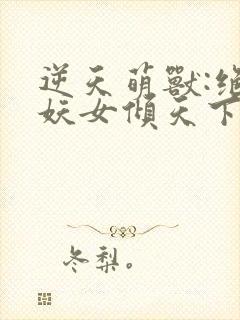 逆天萌獸:絕
妖女傾天下
冬梨。